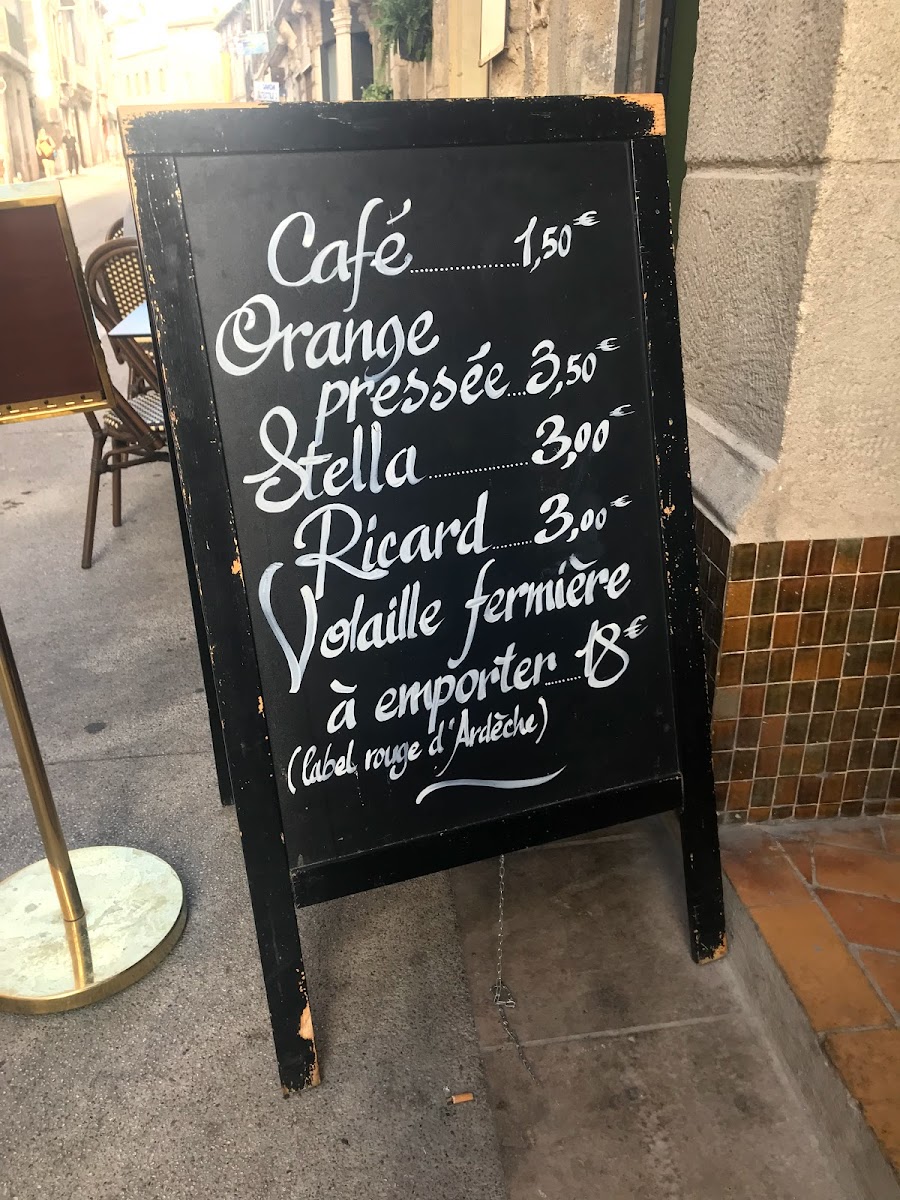 Café..............1,50€
Orange
pressée...3,50€
Stella..............3,00€
Ricard......3,00€
Volaille fermière
à emporter.....18€
(label rouge d'Ardèche)